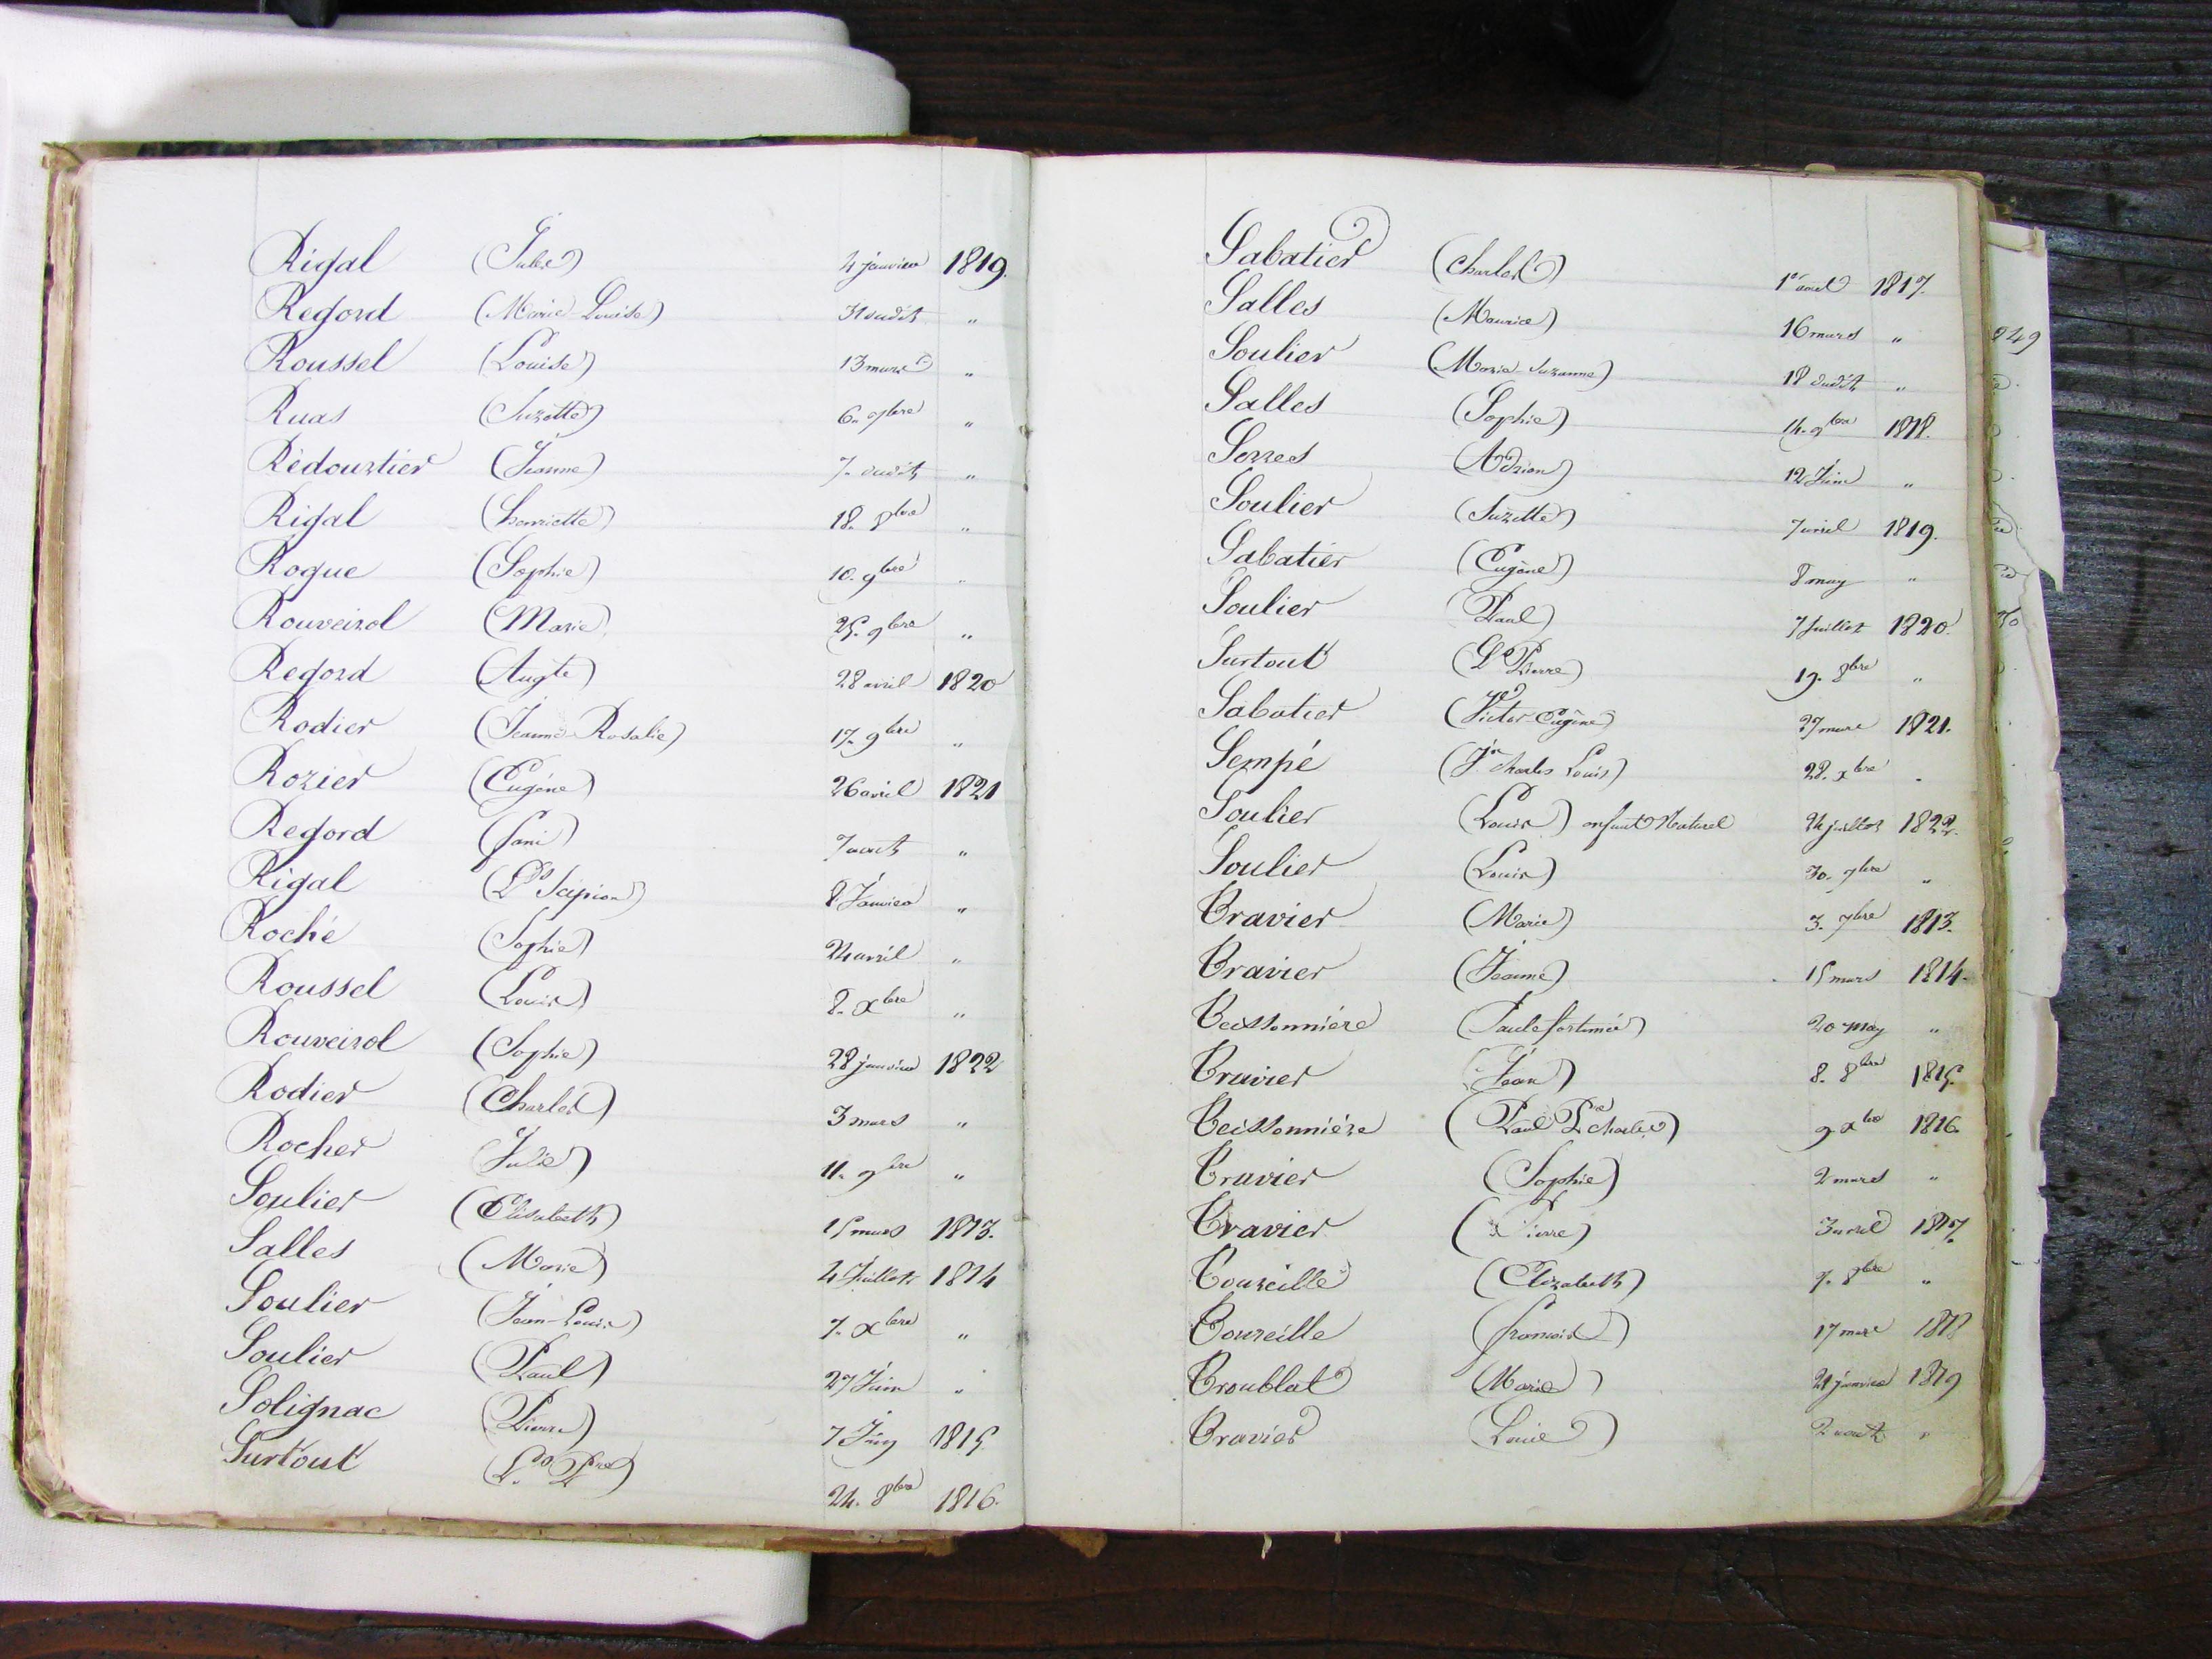 Rigal (Jules) 4 janvier 1819.
Regord (Marie-Louise) 31 dudit "
Roussel (Louise) 13 mars "
Ruas (Suzette) 6. 7bre "
Rédourtier (Jeanne) 7. dudit "
Rigal (henriette) 18. 8bre "
Rogue (Sophie) 10. 9bre "
Rouveirol (Marie) 25. 9bre "
Regord (Augte) 28 avril 1820
Rodier (Jeanne-Rosalie) 17. 9bre "
Rozier (Eugéne) 26 avril 1821
Regord (fani) 7 aout "
Rigal (Ls Scipion) 8 Janvier "
Roché (Sophie) 24 avril "
Roussel (Louis) 8. xbre "
Rouveirol (Sophie) 28 janvier 1822
Rodier (Charles) 3 mars "
Rocher Julie) 11. 9bre "
Soulier (Elisabeth) 15 mars 1813.
Salles (Marie) 4 Juillet 1814
Soulier (Jean-Louis) 7. xbre "
Soulier (Paul) 27 Juin "
Solignac (Pierre) 7 Juin 1815
Surtout (Ls Pre) 24. 8bre 1816.
Sabatier (Charles) 1er avril 1817.
Salles (Maurice) 16 mars "
Soulier (Marie-Suzanne) 18 dudit "
Salles (Sophie) 14. 9bre 1818.
Serres (Adrien) 12 Juin "
Soulier (Suzette) 7 avril 1819.
Sabatier (Eugène) 8 may "
Soulier Paul) 7 Juillet 1820.
Surtout (Ls Pierre) 19. 8bre "
Sabatier (Victor Eugène) 27 mars 1821.
Sempé (Jn Charles Louis) 28. xbre "
Soulier (Louis) enfant Naturel 24 juillet 1822.
Soulier (Louis) 30. 7bre "
Travier (Marie) 3. 7bre 1813.
Travier (Jeanne) 15 mars 1814.
Teissonniére (Paule fortunée) 20 may "
Travier (Jean) 8. 8bre 1815.
Teissonniére (Paul Pre Charles) 9 xbre 1816.
Travier (Sophie) 2 mars "
Travier (Pierre) 3 avril 1817.
Toureille (Elizabeth) 7. 8bre "
Toureille (francois) 17 mars 1818
Troublat (Marie) 21 janvier 1819
Travier Louise) 2 aout "